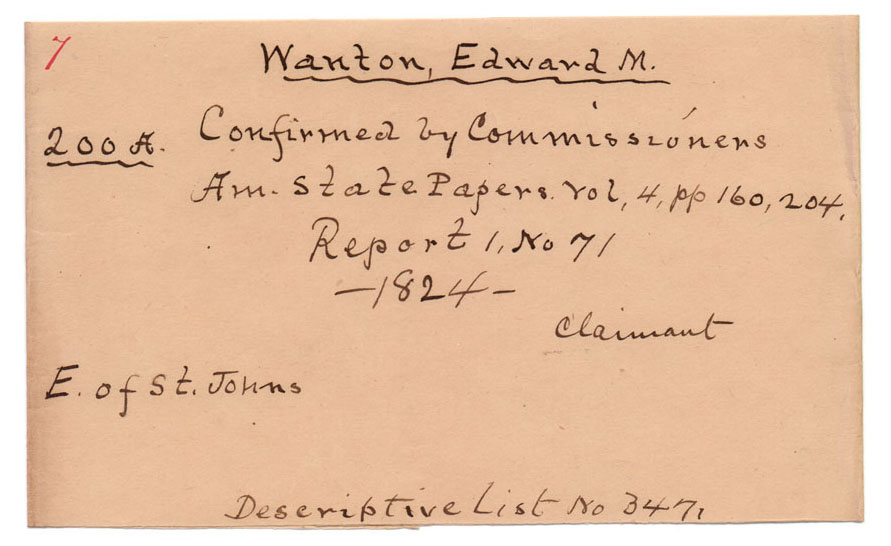 7
Wanton, Edward M.
200 A. Confirmed by Commissioners
Am. State Papers. Vol, 4, pp 160, 204.
Report 1, No 71
—1824—
Claimant
E. of St. Johns
Descriptive List No 347,